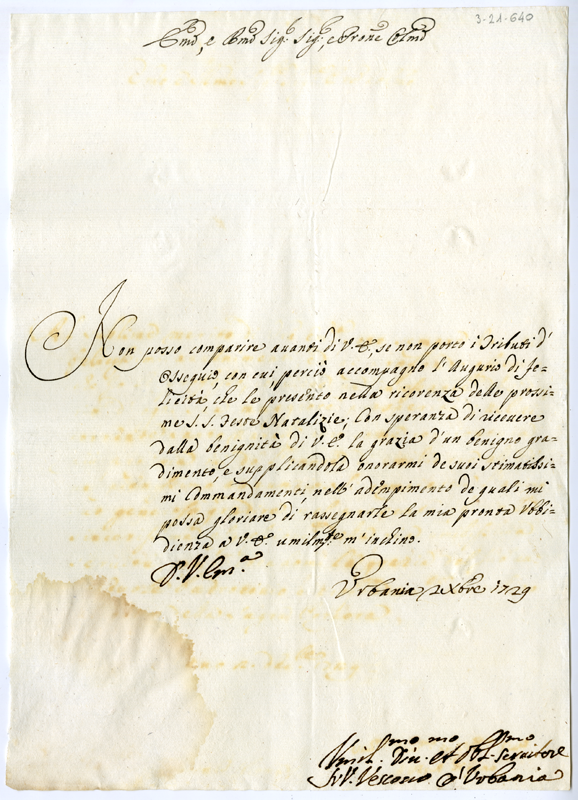 3-21-640
Em̃o, e Rm̃o Sig.r Sig.r, e Prone Colmo
Non posso comparire avanti di V. E., se non porto i Tributi d'
Ossequio, con cui perciò accompagno l'Augurio di fe-
licità, che le presento nella ricorenza delle prossi-
me S. S. Feste Natalizie; Con speranza di ricevere
dalla benignità di V. E. la grazia d'un benigno gra-
dimento, e supplicandola onorarmi de suoi stimatissi-
mi Commandamenti, nell'adempimento de quali mi
possa gloriare di rassegnarle la mia pronta Vbbi-
dienza a V. E. umilmte. m'inchino.
D. V. Em.a
Vrbania 2 Xbre 1729
Vmil.mo Div.mo et Obl.mo servitore
Vescovo d'Vrbania